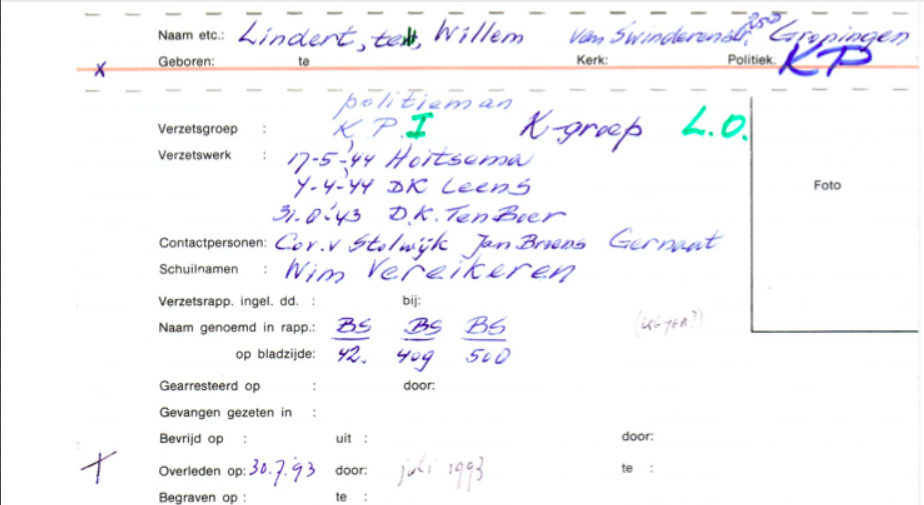 Naam etc.: Lindert, ter, Willem van Swinderenstr. 250 Groningen
x Geboren: te Kerk: Politiek: KP
politieman
Verzetsgroep : K.P.I K-groep L.O.
Verzetswerk : 17-5-'44 Hoitsema
Foto
4-4-'44 DK Leens
D.K. Ten Boer
Contactpersonen: Cor. v Stolwijk Jan Broens Gernaat
Schuilnamen : Wim Vereikeren
Verzetsrapp. ingel. dd. : bij:
Naam genoemd in rapp.: BS BS BS
op bladzijde: 42. 409 500
Gearresteerd op : door:
Gevangen gezeten in :
Bevrijd op : uit : door:
Overleden op: 30.7.'93 door: juli 1993 te :
Begraven op : te :